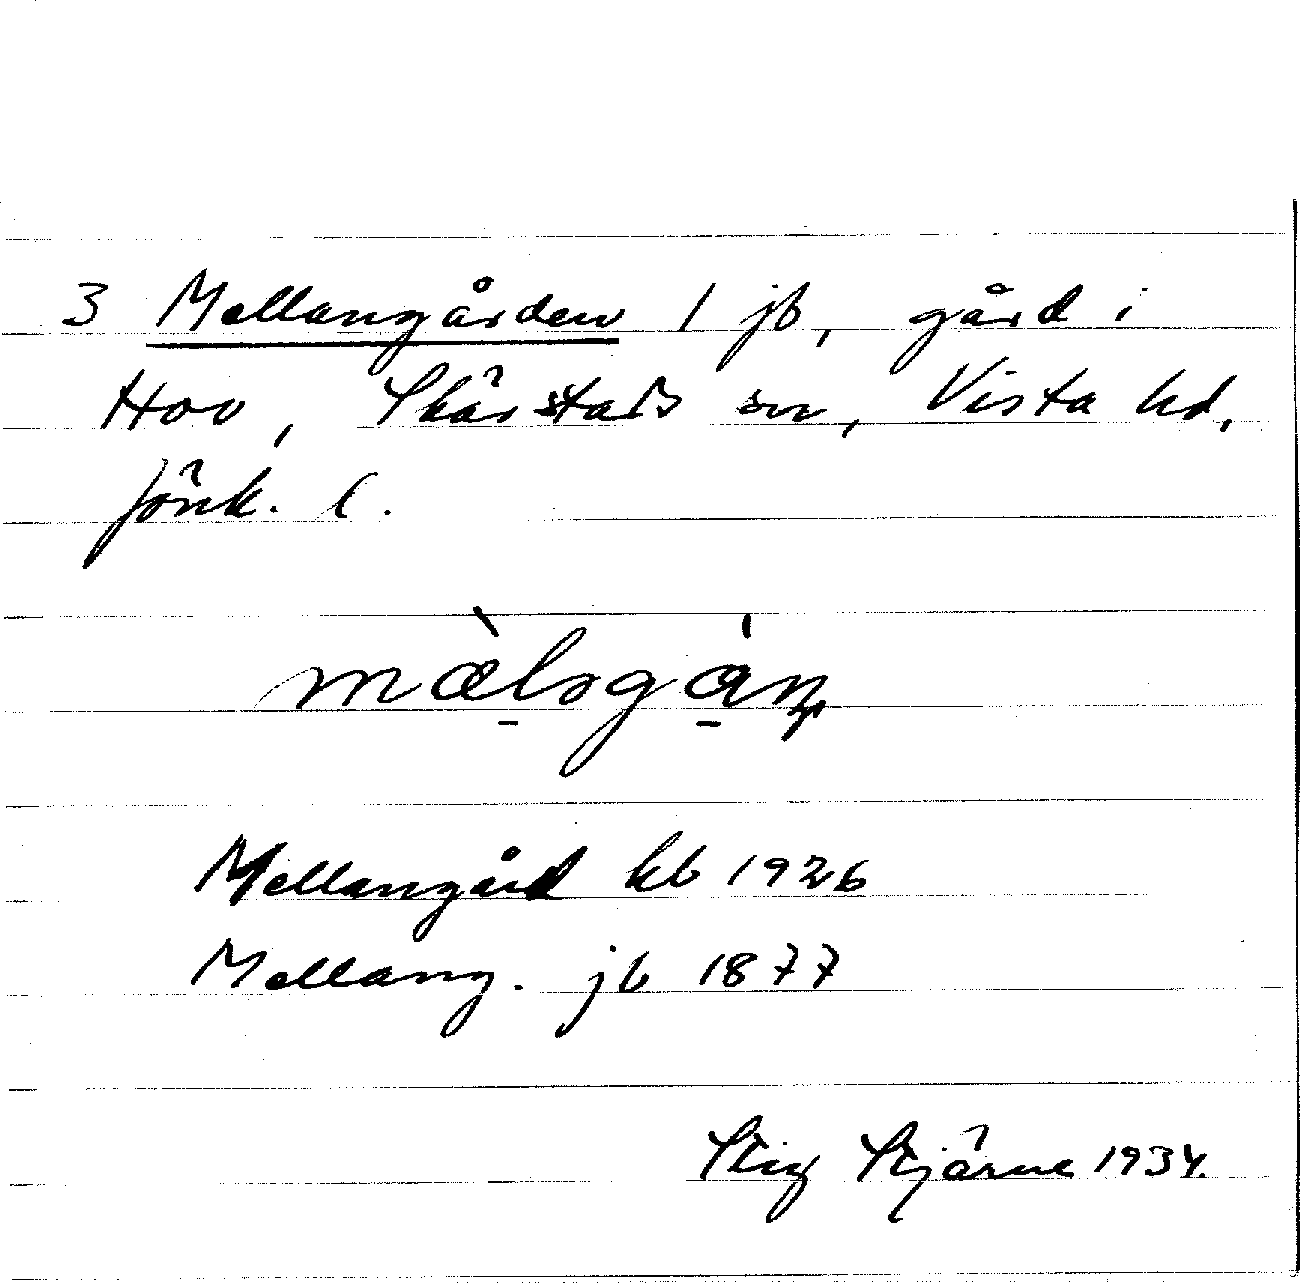 3 Mellangården 1 jb, gård i
Hov, Skärstads sn, Vista hd,
Jönk. l.
Mellangård kb 1926
Mellang. jb 1877
Stig Stjärne 1934.